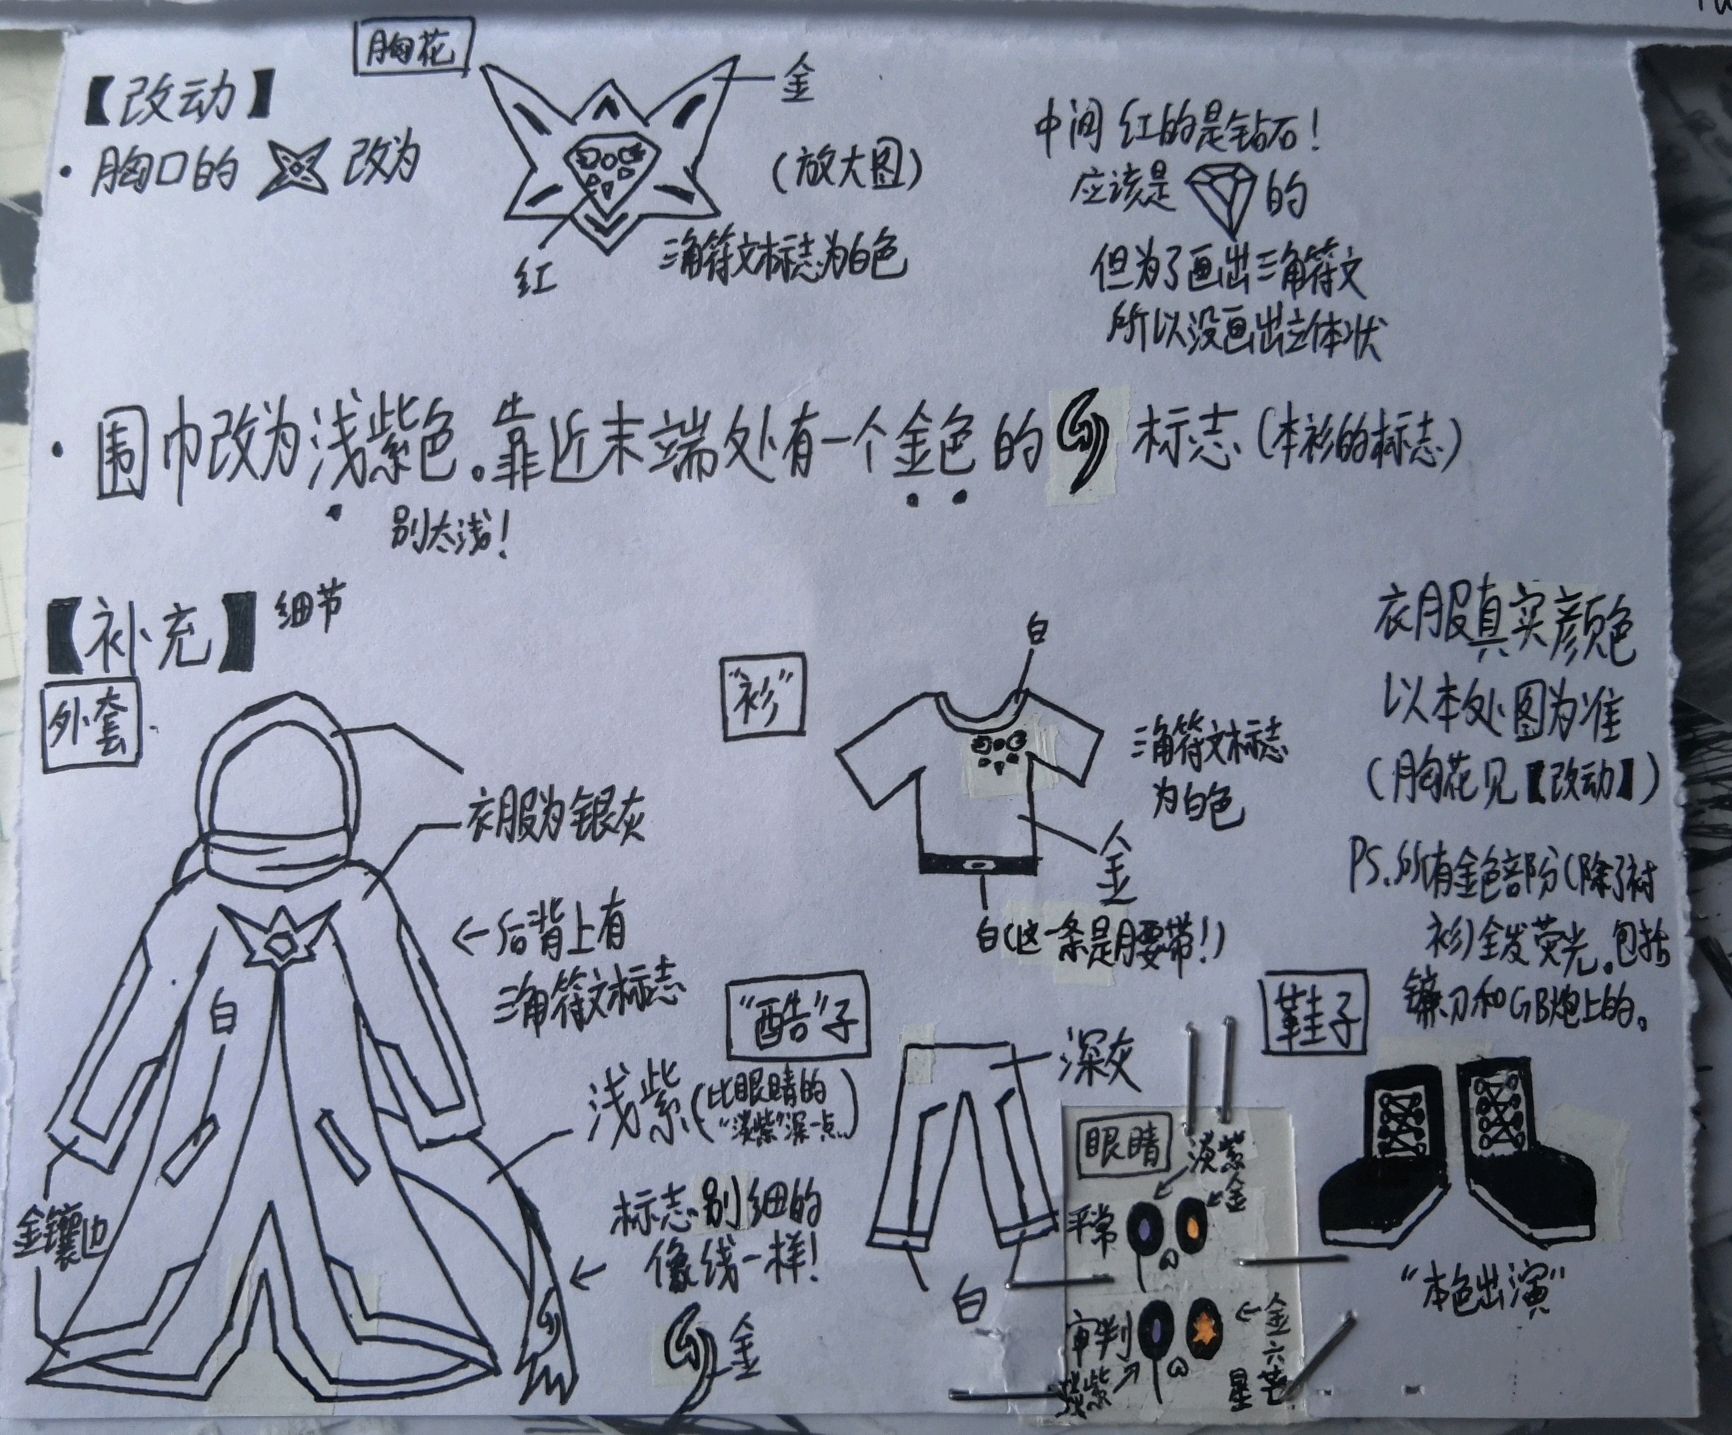 胸花
【改动】
金
·胸口的 改为
(放大图)
红
三角符文标志为白色
中间红的是钻石!
应该是 的
但为了画出三角符文
所以没画出立体状
·围巾改为浅紫色。靠近末端处有一个金色的 标志(本衫的标志)
别太浅!
【补充】细节
外套
衣服为银灰
←后背上有
三角符文标志
白
浅紫(比眼睛的
"淡紫"深一点)
金镶边
标志别细的
像线一样!
金
"衫"
白
三角符文标志
为白色
金
白(这一条是腰带!)
衣服真实颜色
以本处图为准
(胸花见【改动】)
PS.所有金色部分(除了衬
衫)全发荧光。包括
镰刀和GB炮上的。
"酷"子
深灰
白
眼睛
淡紫
金
平常
审判
紫
金六
星芒
鞋子
"本色出演"